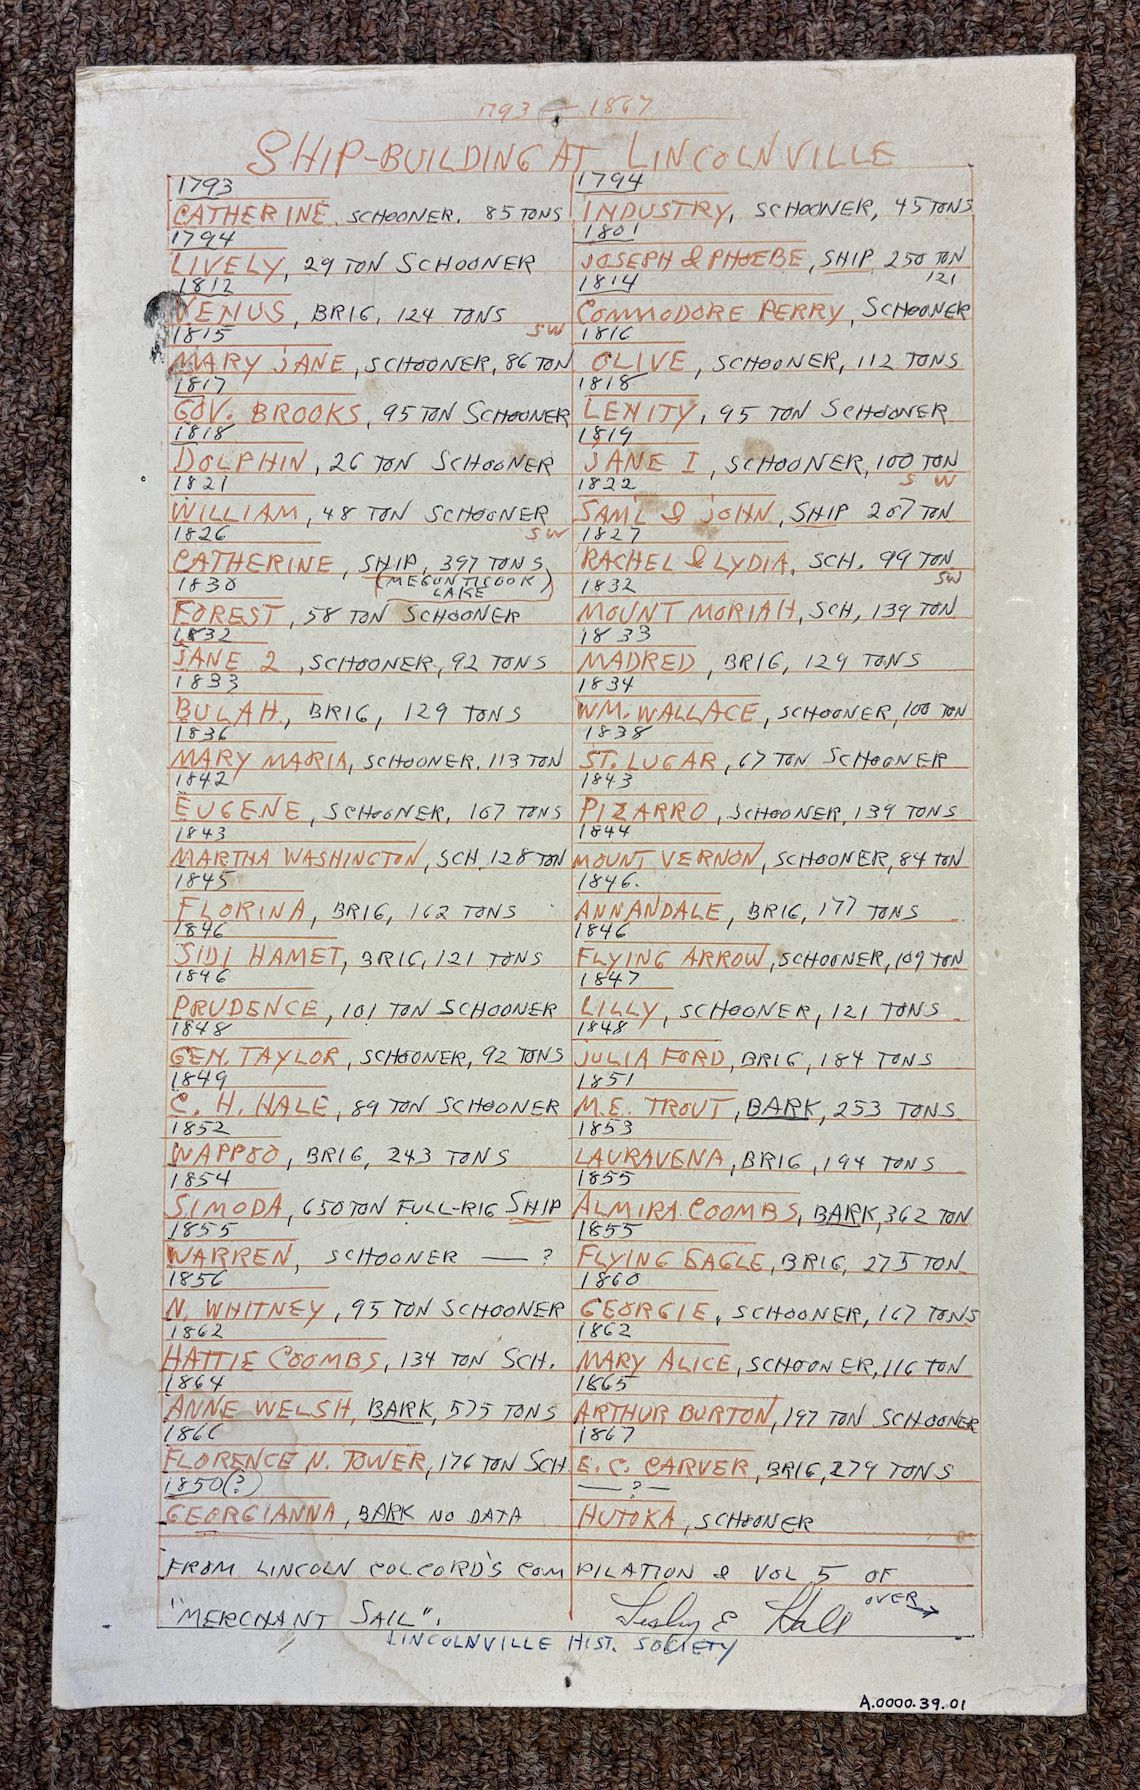 1793 — 1867
SHIP-BUILDING AT LINCOLNVILLE
1793
CATHERINE, SCHOONER, 85 TONS
1794
LIVELY, 29 TON SCHOONER
1812
VENUS, BRIG, 124 TONS
SW
1815
MARY JANE, SCHOONER, 86 TON
1817
GOV. BROOKS, 95 TON SCHOONER
1818
DOLPHIN, 26 TON SCHOONER
1821
WILLIAM, 48 TON SCHOONER
SW
1826
CATHERINE, SHIP, 397 TONS
(MEGUNTICOOK LAKE)
1830
FOREST, 58 TON SCHOONER
1832
JANE 2, SCHOONER, 92 TONS
1833
BULAH, BRIG, 129 TONS
1836
MARY MARIA, SCHOONER, 113 TON
1842
EUGENE, SCHOONER, 167 TONS
1843
MARTHA WASHINGTON, SCH. 128 TON
1845
FLORINA, BRIG, 162 TONS
1846
SIDI HAMET, BRIG, 121 TONS
1846
PRUDENCE, 101 TON SCHOONER
1848
GEN. TAYLOR, SCHOONER, 92 TONS
1849
C. H. HALE, 89 TON SCHOONER
1852
WAPPOO, BRIG, 243 TONS
1854
SIMODA, 650 TON FULL-RIG SHIP
1855
WARREN, SCHOONER — ?
1856
N. WHITNEY, 95 TON SCHOONER
1862
HATTIE COOMBS, 134 TON SCH.
1864
ANNE WELSH, BARK, 575 TONS
1866
FLORENCE N. TOWER, 176 TON SCH
1850(?)
GEORGIANNA, BARK NO DATA
1794
INDUSTRY, SCHOONER, 45 TONS
1801
JOSEPH & PHOEBE, SHIP 250 TON
1814
121
COMMODORE PERRY, SCHOONER
1816
OLIVE, SCHOONER, 112 TONS
1818
LENITY, 95 TON SCHOONER
1819
JANE I, SCHOONER, 100 TON
1822
S W
SAML & JOHN, SHIP 267 TON
1827
RACHEL & LYDIA, SCH. 99 TON
1832
SW
MOUNT MORIAH, SCH, 139 TON
1833
MADRED, BRIG, 129 TONS
1834
WM. WALLACE, SCHOONER, 100 TON
1838
ST. LUGAR, 67 TON SCHOONER
1843
PIZARRO, SCHOONER, 139 TONS
1844
MOUNT VERNON, SCHOONER, 84 TON
1846.
ANNANDALE, BRIG, 177 TONS
1846
FLYING ARROW, SCHOONER, 109 TON
1847
LILLY, SCHOONER, 121 TONS
1848
JULIA FORD, BRIG, 184 TONS
1851
M.E. TROUT, BARK, 253 TONS
1853
LAURAVENA, BRIG, 194 TONS
1855
ALMIRA COOMBS, BARK, 362 TON
1855
FLYING EAGLE, BRIG, 275 TON
1860
GEORGIE, SCHOONER, 167 TONS
1862
MARY ALICE, SCHOONER, 116 TON
1865
ARTHUR BURTON, 197 TON SCHOONER
1867
E. C. CARVER, BRIG, 279 TONS
— ? —
HUTOKA, SCHOONER
FROM LINCOLN COLCORD'S COMPILATION & VOL 5 OF
"MERCHANT SAIL".
OVER →
E Hall
LINCOLNVILLE HIST. SOCIETY
A.0000.39.01